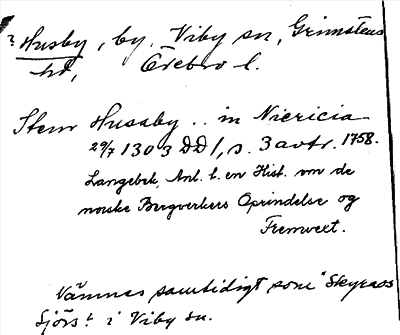 ? Husby, by, Viby sn, Grimstens
hd, Örebro l.
Stenr Hussby .. in Niericia
29/7 1303 DD 1, s. 3 avtr. 1758.
Langebek, Anl. t. en Hist. om de
norske Bergverkers Oprindelse og
Fremvext.
Nämnes samtidigt som "Skyraos
Sjörs" i Viby sn.